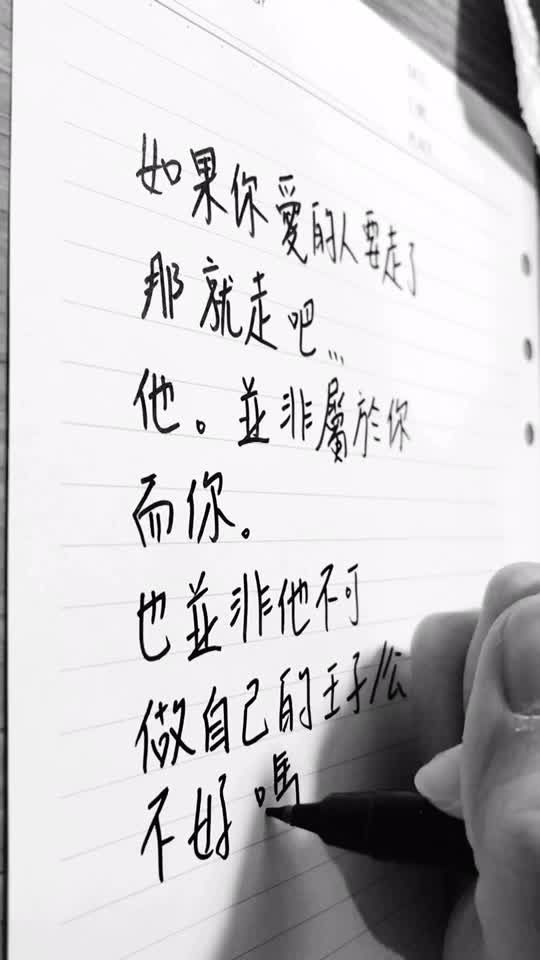 如果你愛的人要走了
那就走吧...
他。並非屬於你
而你。
也並非他不可
做自己的王子/公
不好嗎